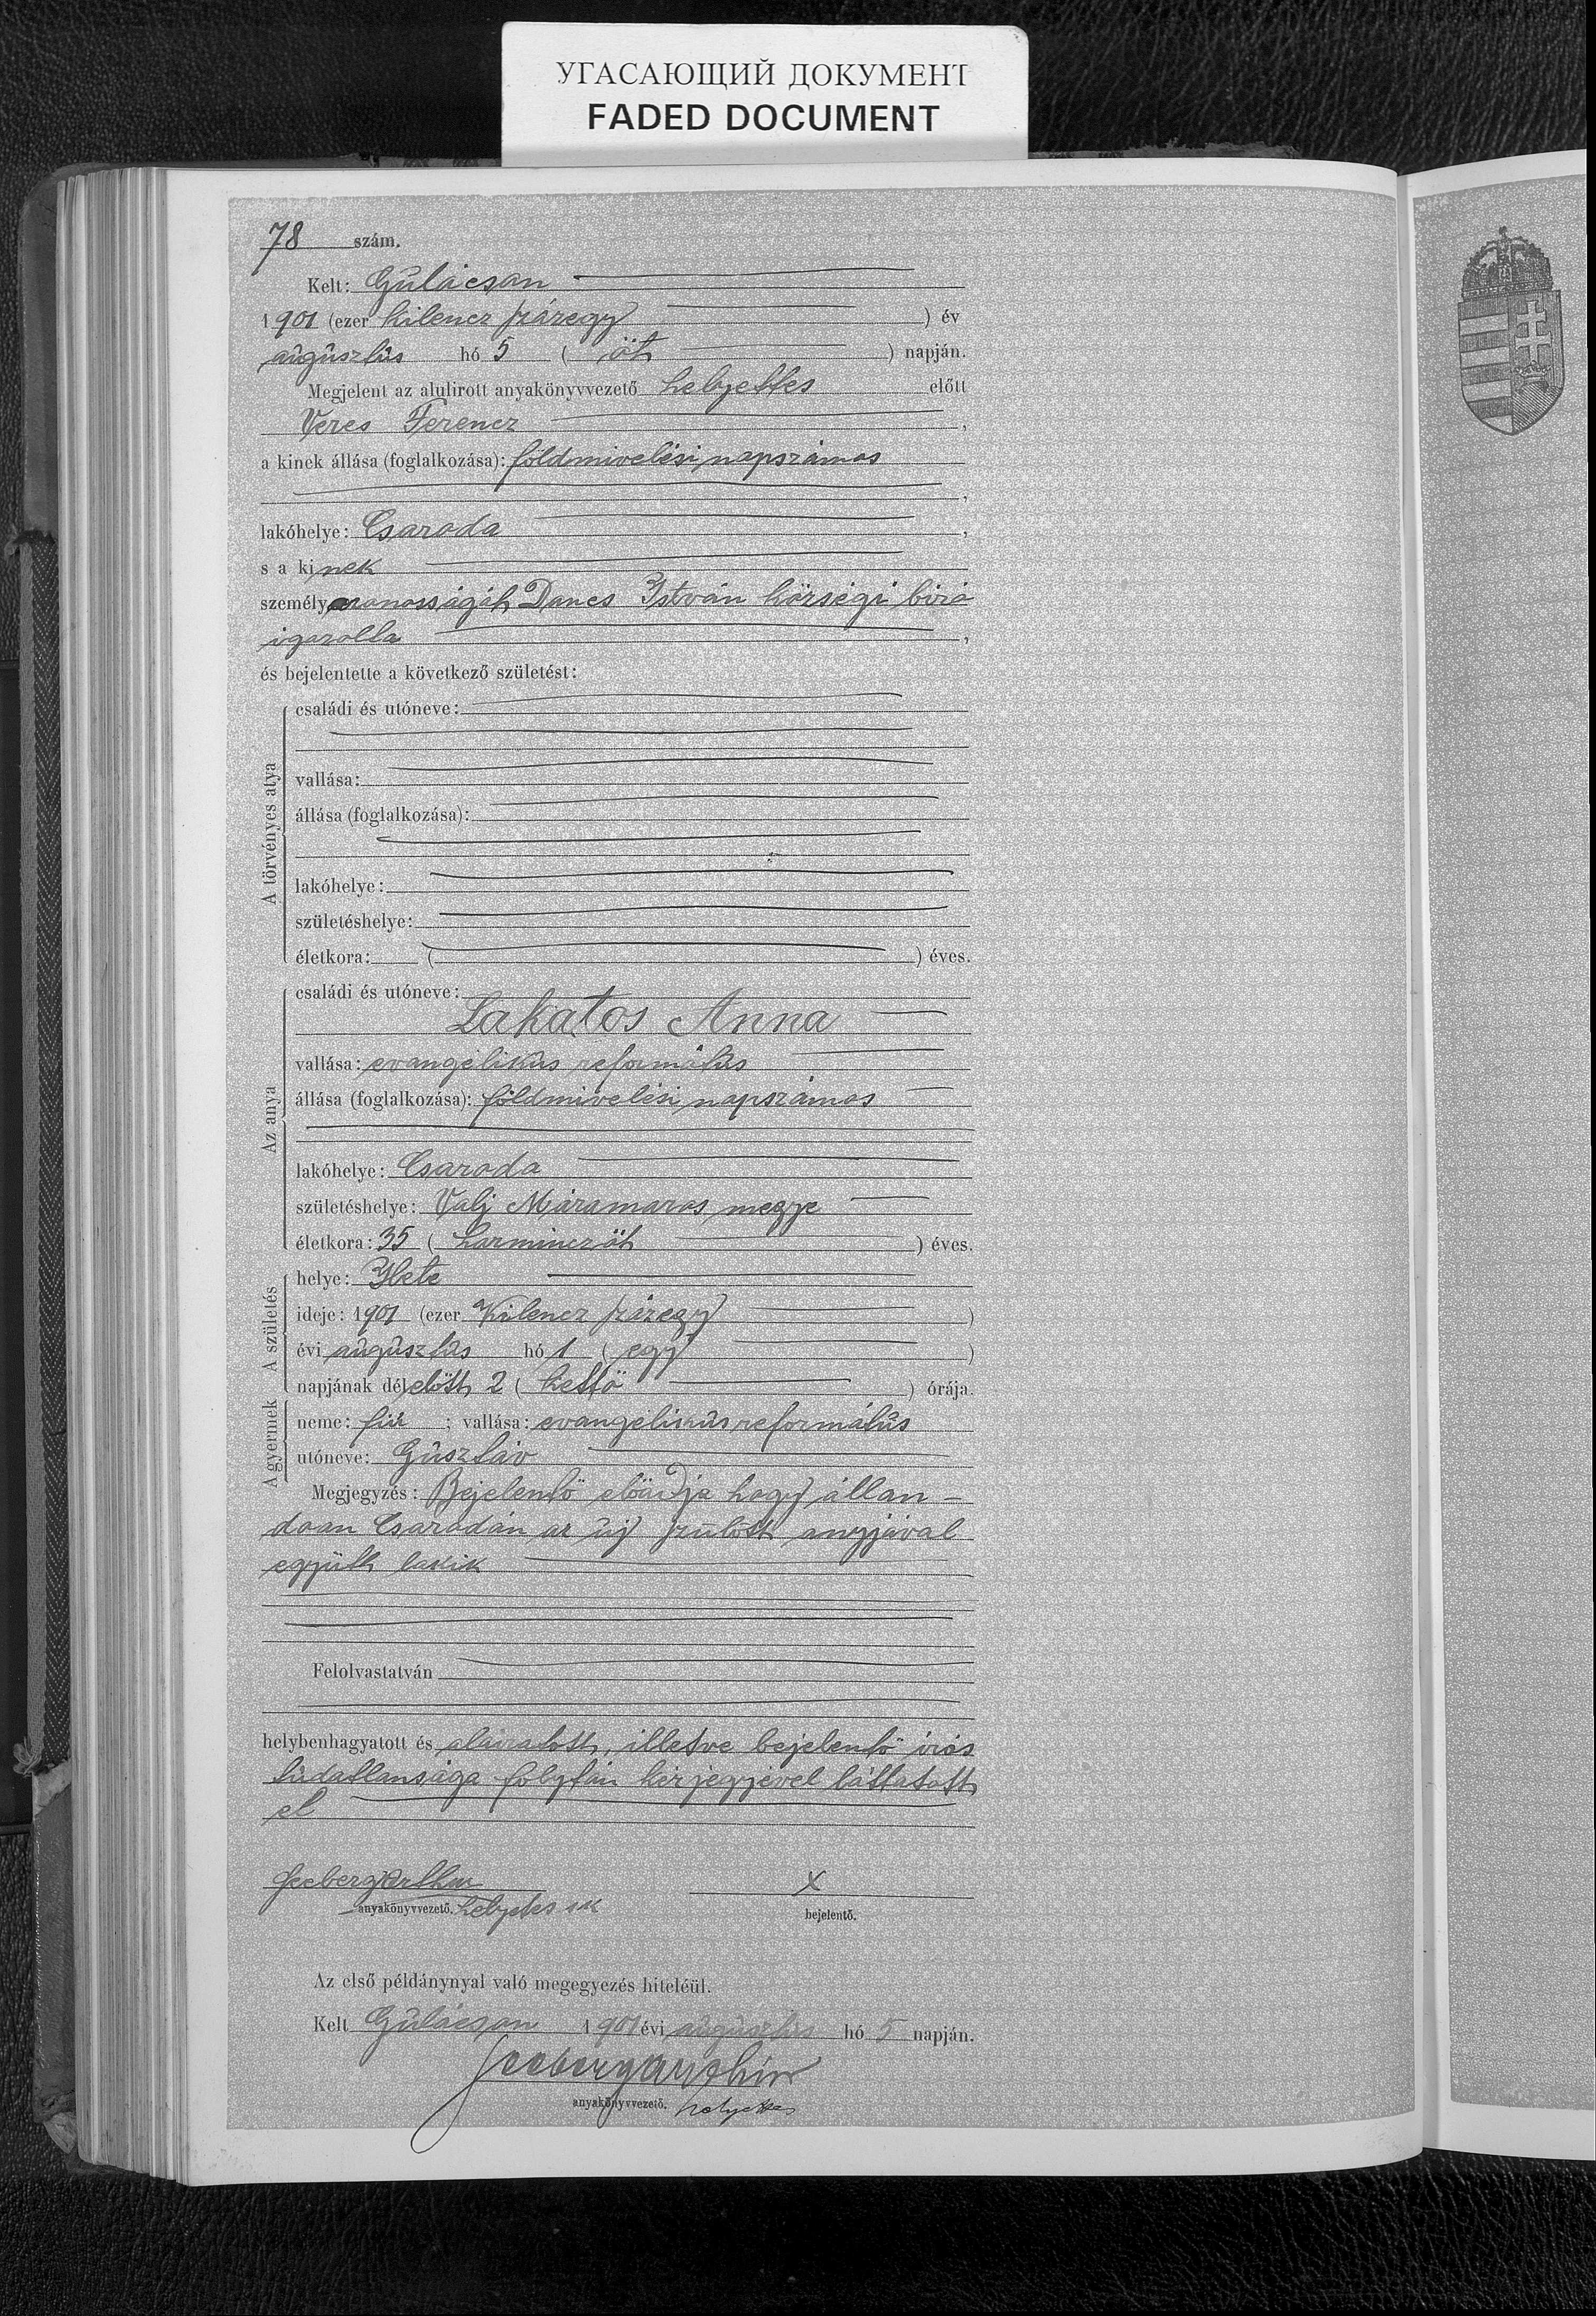 УГАСАЮЩИЙ ДОКУМЕНТ
FADED DOCUMENT
78 szám.
Kelt: Gulácson
1901 (ezer kilencz százegy) év
augusztus hó 5 (öt) napján.
Megjelent az alulirott anyakönyvvezető helyettes előtt
Veres Ferencz,
a kinek állása (foglalkozása): földmivelési napszámos
,
lakóhelye: Csaroda,
s a kinek
személyazonosságát Dancs István községi biró
igazolta,
és bejelentette a következő születést:
A törvényes atya
családi és utóneve:
vallása:
állása (foglalkozása):
lakóhelye:
születéshelye:
életkora: ( ) éves.
Az anya
családi és utóneve:
Lakatos Anna
vallása: evangélikus református
állása (foglalkozása): földmivelési napszámos
lakóhelye: Csaroda
születéshelye: Máramaros megye
életkora: 35 (harminczöt) éves.
A születés
helye:
ideje: 1901 (ezer kilencz százegy)
évi augusztus hó 1 (egy)
napjának délelőtt 2 (kettő) órája.
A gyermek
neme: fiú; vallása: evangélikus református
utóneve: Gusztáv
Megjegyzés: Bejelentő előadja hogy állan-
doan Csarodán az új szülött anyjával
együtt lakik
Felolvastatván
helybenhagyatott és aláiratott, illetve bejelentő irás
tudatlansága folytán kézjegyével láttatott
el
Seeberg Arthur X
anyakönyvvezető. helyettes sk bejelentő.
Az első példánynyal való megegyezés hiteléül.
Kelt Gulácson 1901 évi augusztus hó 5 napján.
Seeberg Arthur
anyakönyvvezető. helyettes